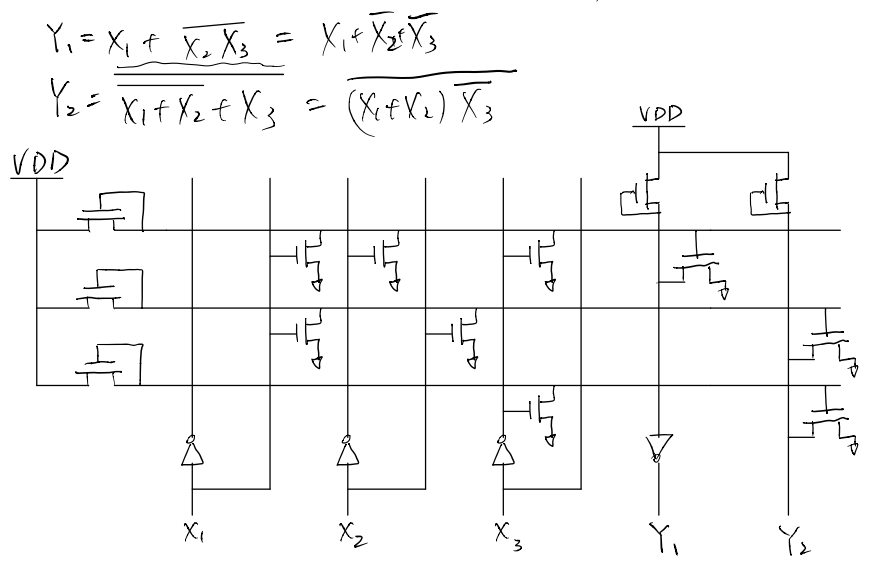 Y₁ = X₁ + \overline{X₂ X₃} = X₁ + \overline{X₂} + \overline{X₃}
Y₂ = \overline{\overline{\overline{X₁ + X₂} + X₃}} = \overline{(X₁ + X₂) \overline{X₃}}
VDD
VDD
X₁ X₂ X₃ Y₁ Y₂